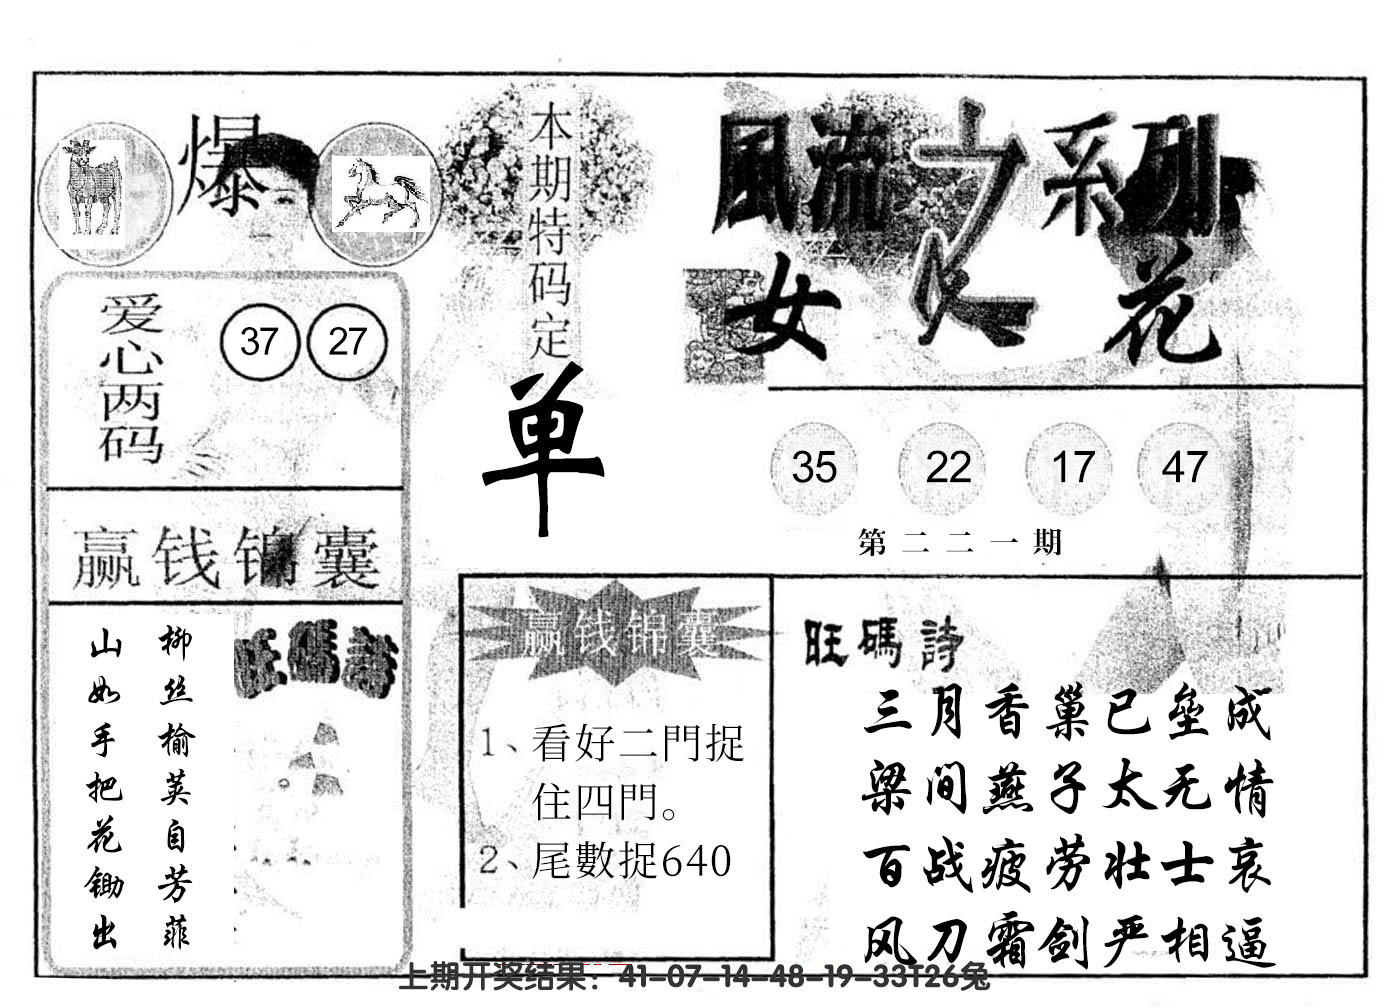 爆
本期特码定
单
風流之系列
女人花
爱心两码
37 27
35 22 17 47
第二二一期
赢钱锦囊
柳丝榆荚自芳菲
山如手把花锄出
旺碼詩
赢钱锦囊
1、看好二門捉
住四門。
2、尾數捉640
旺碼詩
三月香巢已壘成
梁间燕子太无情
百战疲劳壮士哀
风刀霜剑严相逼
上期开奖结果：41-07-14-48-19-33T26兔